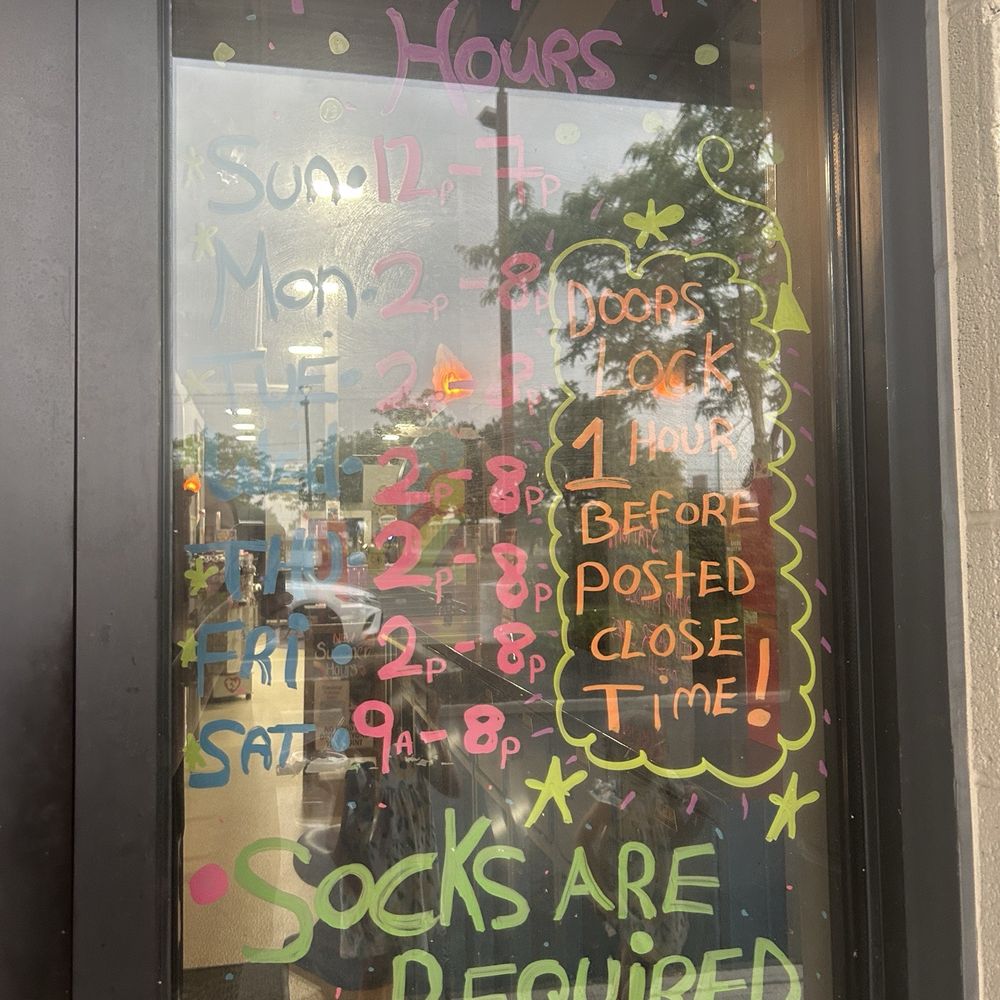 Hours
Sun. 12p-7p
Mon. 2p-8p
Tue. 2p-8p
Wed. 2p-8p
Thu. 2p-8p
Fri. 2p-8p
Sat. 9A-8p
Doors
Lock
1 Hour
Before
Posted
Close
Time!
Socks are
Required